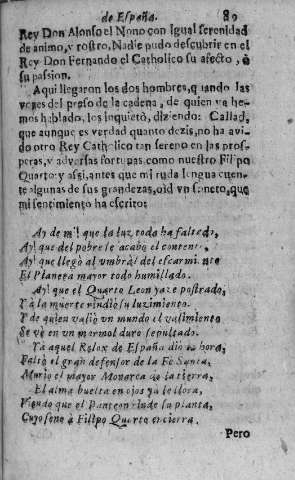 de España. 89
Rey Don Alonso el Nono con Igual serenidad
de animo, y rostro, Nadie pudo descubrir en el
Rey Don Fernando el Catholico su afecto, ò
su passion.
Aqui llegaron los dos hombres, quando las
vozes del preso de la cadena, de quien ya he-
mos hablado, los inquietò, diziendo: Callad,
que aunque es verdad quanto dezis, no ha avi-
do otro Rey Catholico tan sereno en las pros-
peras, y adversas fortunas como nuestro Filipo
Quarto: y assi, antes que mi ruda lengua cuen-
te algunas de sus grandezas, oid vn soneto, que
mi sentimiento ha escrito:
Ay de mi! que la luz toda ha faltado,
Ay! que del pobre se acabò el contento,
Ay! que llegò al vmbral del escarmiento
El Planeta mayor todo humillado.
Ay! que el Quarto Leon yaze postrado,
Y à la muerte rindiò su luzimiento.
Y de quien valiò vn mundo el valimiento
Se vè en vn marmol duro sepultado.
Yà aquel Relox de España diò su hora,
Faltò el gran defensor de la Fè Santa,
Muriò el mayor Monarca de la tierra,
El alma buelta en ojos ya le llora,
Viendo que el Panteon rinde su planta,
Cuyo seno à Filipo Quarto encierra.
Pero